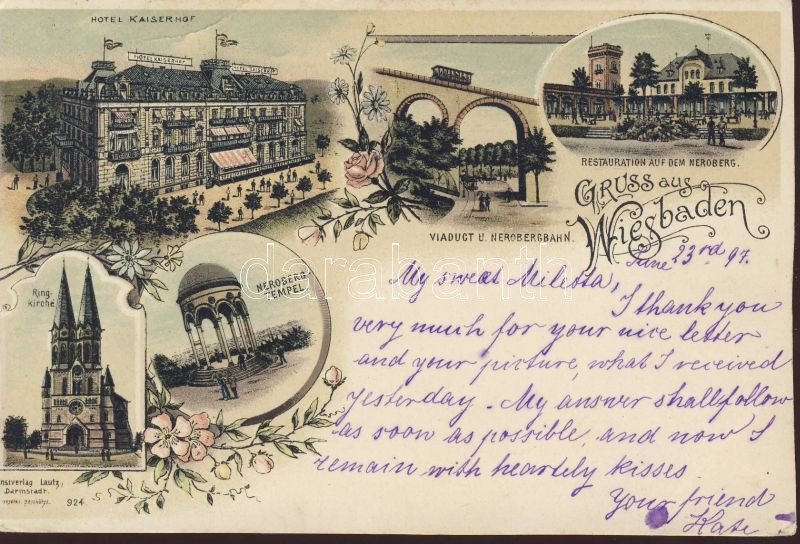 HOTEL KAISERHOF
HOTEL KAISERHOF
RESTAURATION AUF DEM NEROBERG.
VIADUCT U. NEROBERGBAHN.
GRUSS aus
Wiesbaden
Ring-
kirche
NEROBERG-
TEMPEL
nstverlag Lautz,
Darmstadt.
924.
June 23rd 97.
My sweat Milesta,
I thank you
very much for your nice letter
and your picture, what I received
yesterday. My answer shall follow
as soon as possible, and now I
remain with heartely kisses
Your friend
Kate
darabanth